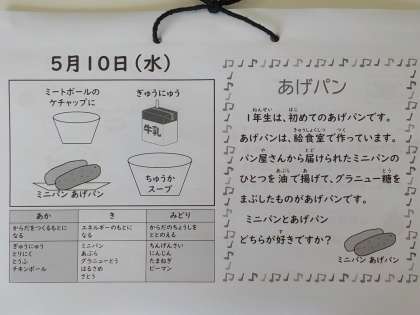 5月10日(水)
ミートボールの
ケチャップに
ぎゅうにゅう
牛乳
ミニパン あげパン
ちゅうか
スープ
あか き みどり
からだをつくるもとに
なる
エネルギーのもとに
なる
からだのちょうしを
ととのえる
ぎゅうにゅう
とりにく
とうふ
チキンボール
ミニパン
あぶら
グラニューとう
はるさめ
さとう
ちんげんさい
にんじん
たまねぎ
ピーマン
あげパン
1年生は、初めてのあげパンです。
あげパンは、給食室で作っています。
パン屋さんから届けられたミニパンの
ひとつを油で揚げて、グラニュー糖を
まぶしたものがあげパンです。
ミニパンとあげパン
どちらが好きですか?
ミニパン あげパン